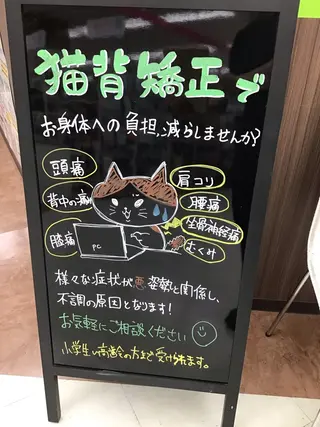 猫背矯正で
お身体への負担、減らしませんか?
頭痛
肩コリ
背中の痛み
腰痛
坐骨神経痛
膝痛
むくみ
PC
様々な症状が悪姿勢と関係し、
不調の原因となります!
お気軽にご相談ください
小学生〜高齢の方まで受けられます。